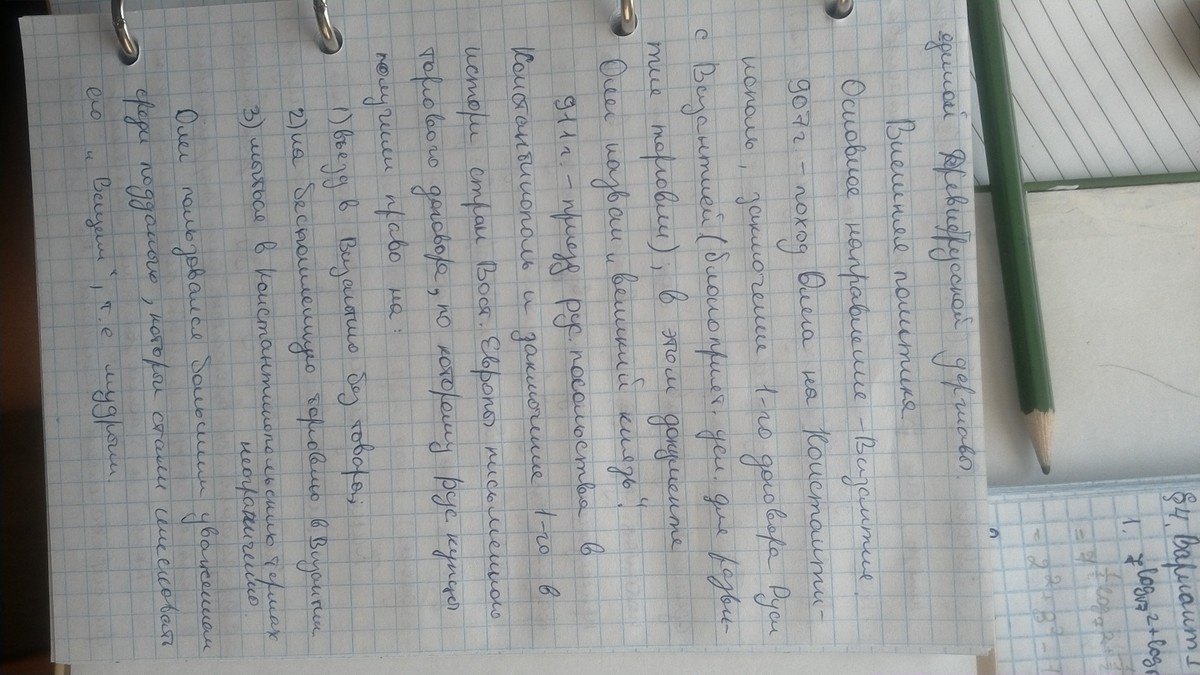 единой Древнерусской державы.
Внешняя политика
Основное направление – Византия.
907 г – поход Олега на Константи-
нополь, заключение 1-го договора Руси
с Византией (благоприят. усл. для разви-
тие торговли); в этом документе
Олег назван "великий князь".
911 г. – приезд рус. посольства в
Константинополь и заключение 1-го в
истори стран Вост. Европы письменного
торгового договора, по которому рус. купцы
получили право на:
1) въезд в Византию без товара;
2) на беспошлинную торговлю в Византии
3) мыться в константинопольских термах
неограниченно.
Олег пользовался большим уважением
среди подданного, которые стали именовать
его "Вещем", т.е мудрым.
§4. Вариант 1
1.